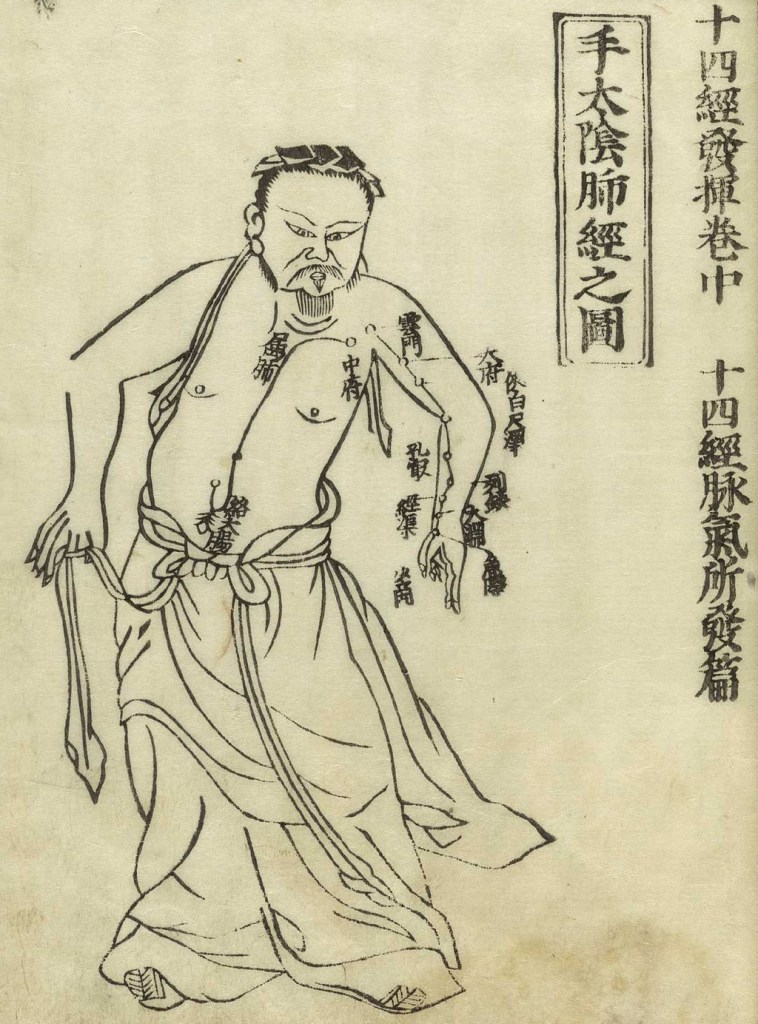 十四經發揮卷中 十四經脉氣所發篇
手太陰肺經之圖
天府
俠白
尺澤
雲門
中府
屬肺
孔㝡
列缺
經渠
太淵
魚際
少商
絡大腸